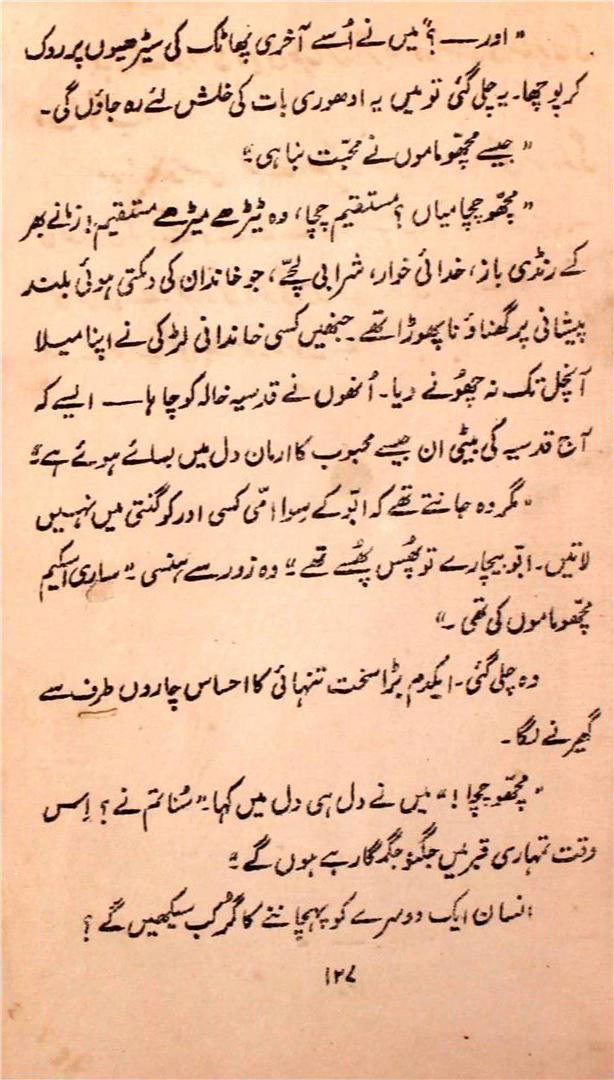 " اور — ؟" میں نے اُسے آخری پھاٹک کی سیڑھیوں پر روک
کر پوچھا۔ یہ چلی گئی تو میں یہ ادھوری بات کی خلش لئے رہ جاؤں گی۔
" جیسے مچھّو ماموں نے محبّت بنا ہی"
" مچھّو چچا میاں ؟ مستقیم چچا، وہ ٹیڑھے میڑھے مستقیم! زمانے بھر
کے رنڈی باز، خدائی خوار، شرابی لچّے، جو خاندان کی دمکتی ہوئی بلند
پیشانی پر گھناؤنا پھوڑا تھے۔ جنھیں کسی خاندانی لڑکی نے اپنا میلا
آنچل تک نہ چھُونے دیا۔ اُنھوں نے قدسیہ خالہ کو چاہا — ایسے کہ
آج قدسیہ کی بیٹی ان جیسے محبوب کا ارمان دل میں بسائے ہوئے ہے"
" مگر وہ جانتے تھے کہ ابّو کے سِوا امّی کسی اور کو گنتی میں نہیں
لاتیں۔ ابّو بیچارے تو پھُس پھُسے تھے" وہ زور سے ہنسی " ساری اسکیم
مچھّو ماموں کی تھی۔"
وہ چلی گئی۔ ایکدم بڑا سخت تنہائی کا احساس چاروں طرف سے
گھیرنے لگا۔
" مچھّو چچا !" میں نے دل ہی دل میں کہا۔ " سُنا تم نے ؟ اِس
وقت تمہاری قبر میں جگنو جگمگا رہے ہوں گے"
انسان ایک دوسرے کو پہچاننے کا گُر کب سیکھیں گے ؟
۱۲۷